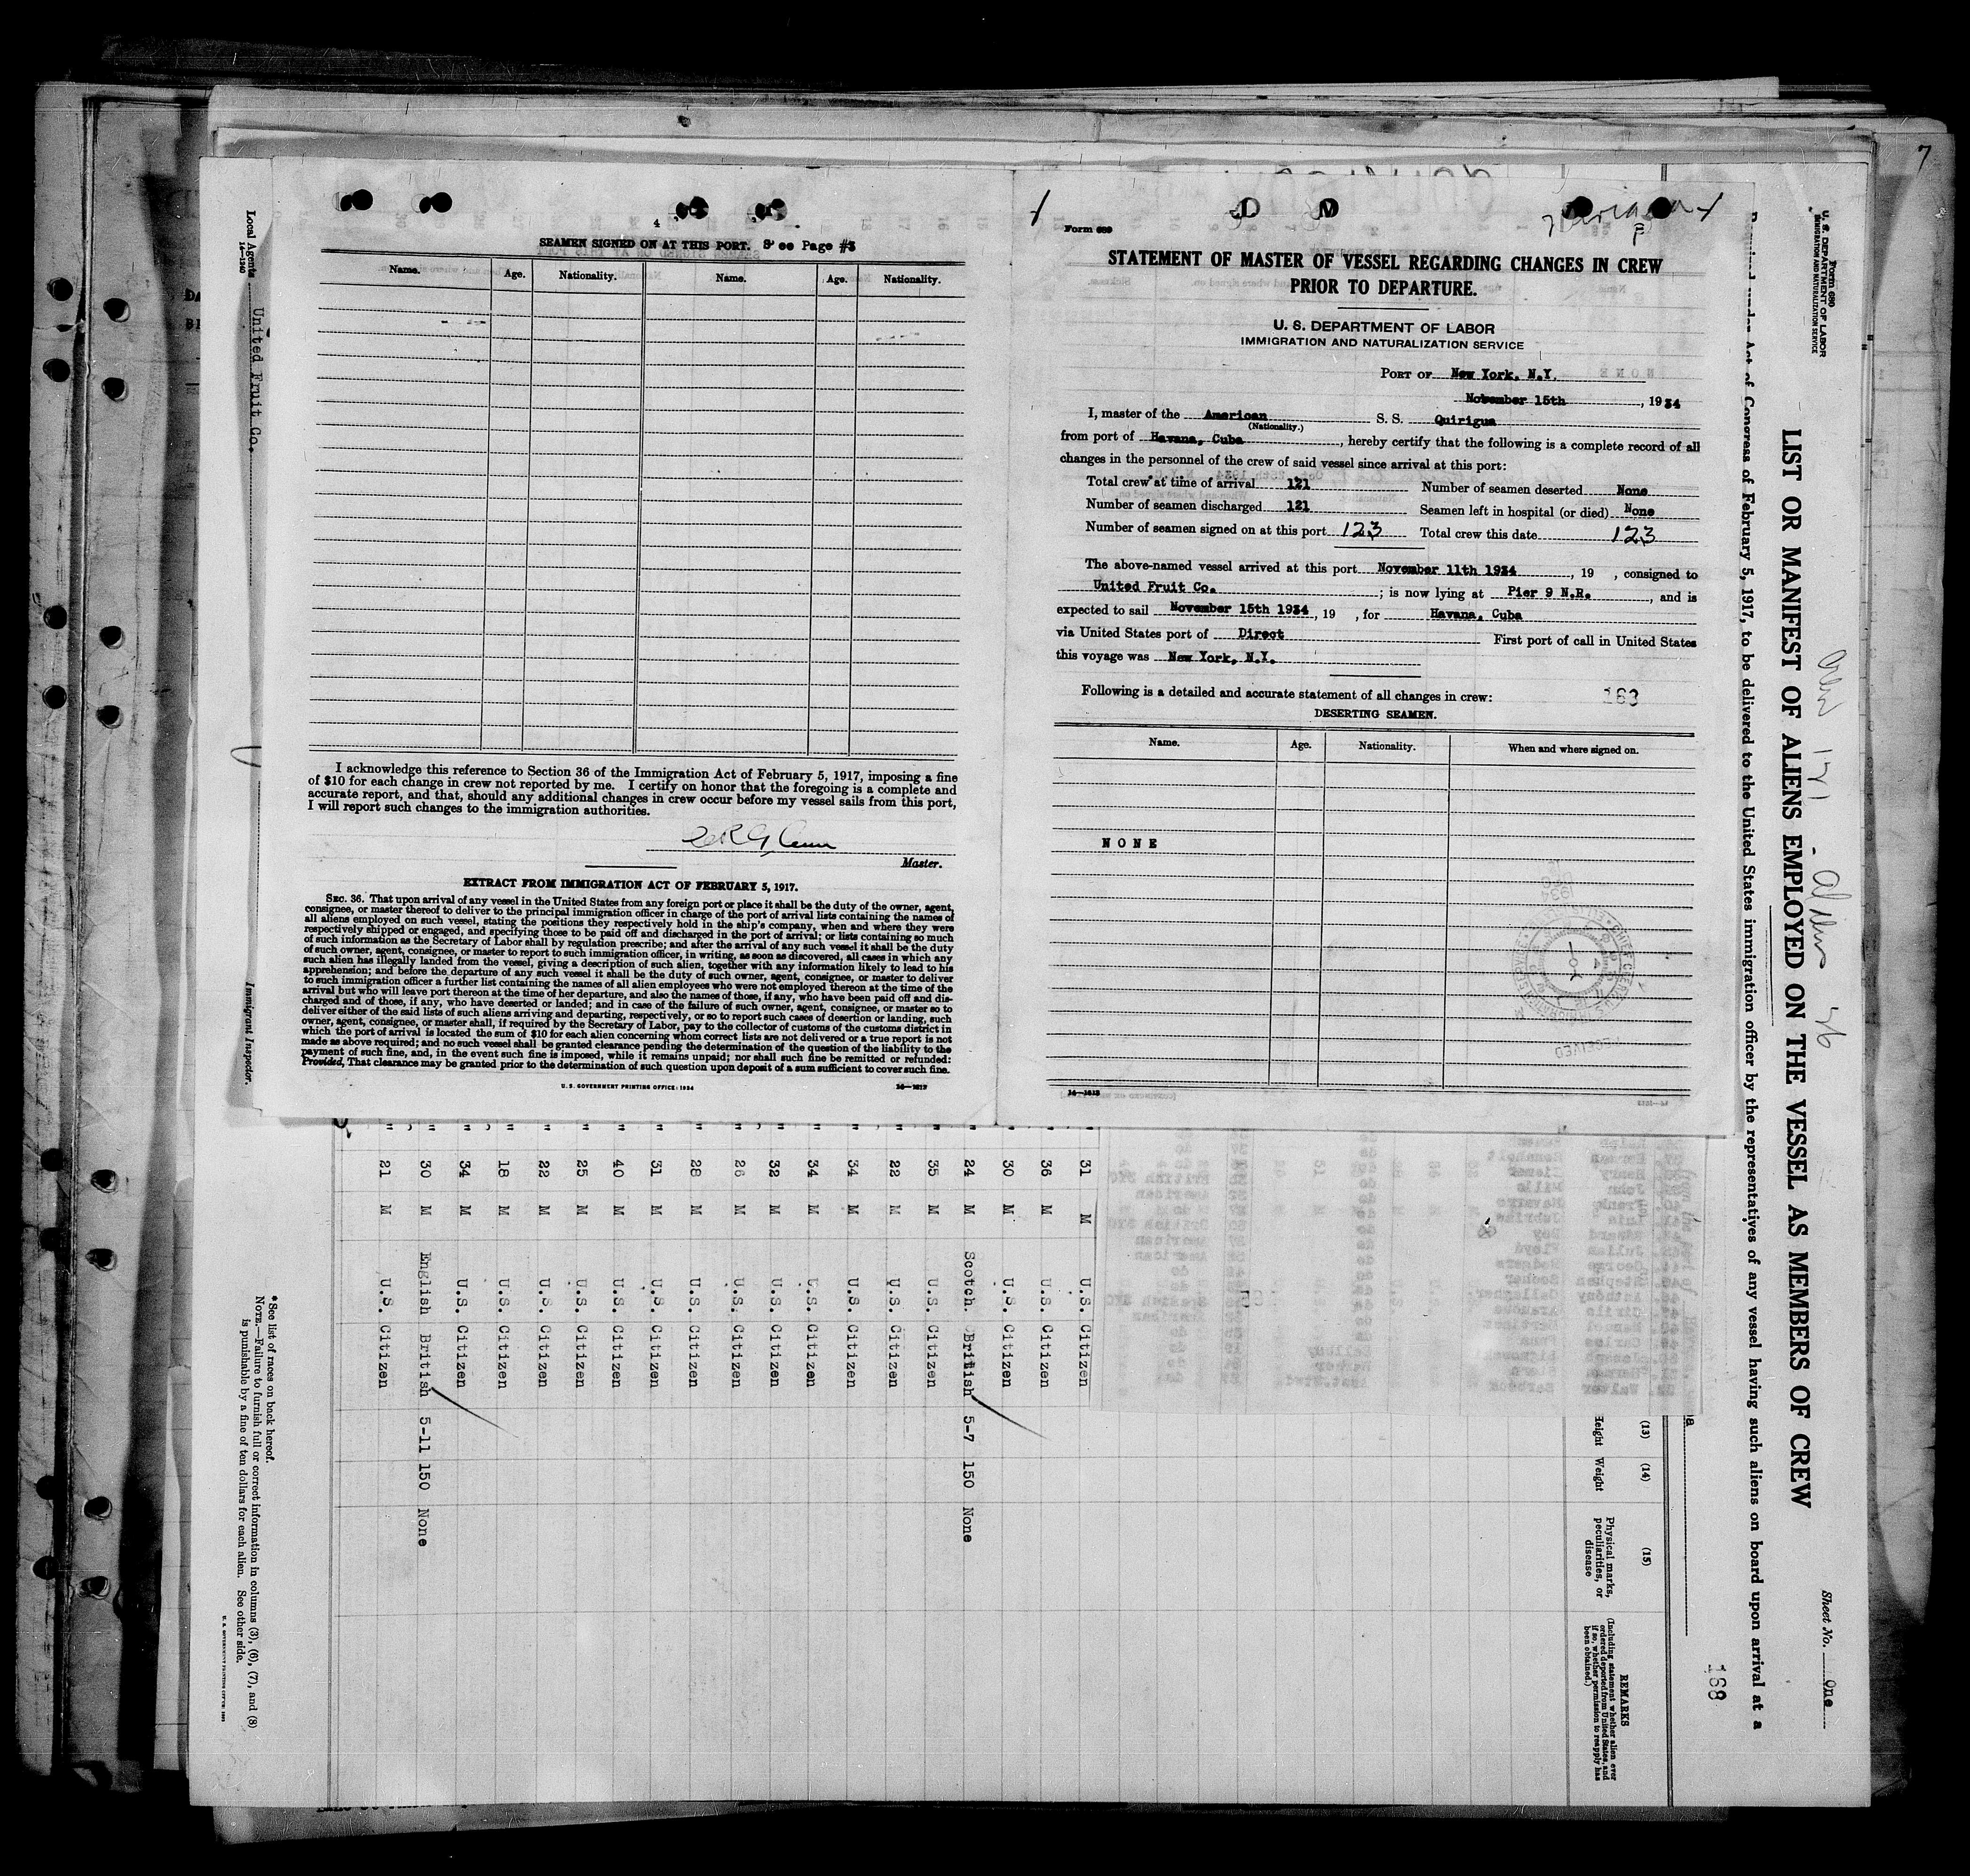 4
SEAMEN SIGNED ON AT THIS PORT. See Page #3
Name. Age. Nationality. Name. Age. Nationality.
I acknowledge this reference to Section 36 of the Immigration Act of February 5, 1917, imposing a fine
of $10 for each change in crew not reported by me. I certify on honor that the foregoing is a complete and
accurate report, and that, should any additional changes in crew occur before my vessel sails from this port,
I will report such changes to the immigration authorities.
Master.
EXTRACT FROM IMMIGRATION ACT OF FEBRUARY 5, 1917.
SEC. 36. That upon arrival of any vessel in the United States from any foreign port or place it shall be the duty of the owner, agent,
consignee, or master thereof to deliver to the principal immigration officer in charge of the port of arrival lists containing the names of
all aliens employed on such vessel, stating the positions they respectively hold in the ship's company, when and where they were
respectively shipped or engaged, and specifying those to be paid off and discharged in the port of arrival; or lists containing so much
of such information as the Secretary of Labor shall by regulation prescribe; and after the arrival of any such vessel it shall be the duty
of such owner, agent, consignee, or master to report to such immigration officer, in writing, as soon as discovered, all cases in which any
such alien has illegally landed from the vessel, giving a description of such alien, together with any information likely to lead to his
apprehension; and before the departure of any such vessel it shall be the duty of such owner, agent, consignee, or master to deliver
to such immigration officer a further list containing the names of all alien employees who were not employed thereon at the time of the
arrival but who will leave port thereon at the time of her departure, and also the names of those, if any, who have been paid off and dis-
charged and of those, if any, who have deserted or landed; and in case of the failure of such owner, agent, consignee, or master so to
deliver either of the said lists of such aliens arriving and departing, respectively, or so to report such cases of desertion or landing, such
owner, agent, consignee, or master shall, if required by the Secretary of Labor, pay to the collector of customs of the customs district in
which the port of arrival is located the sum of $10 for each alien concerning whom correct lists are not delivered or a true report is not
made as above required; and no such vessel shall be granted clearance pending the determination of the question of the liability to the
payment of such fine, and, in the event such fine is imposed, while it remains unpaid; nor shall such fine be remitted or refunded:
Provided, That clearance may be granted prior to the determination of such question upon deposit of a sum sufficient to cover such fine.
U. S. GOVERNMENT PRINTING OFFICE: 1934
Form 689
STATEMENT OF MASTER OF VESSEL REGARDING CHANGES IN CREW
PRIOR TO DEPARTURE.
U. S. DEPARTMENT OF LABOR
IMMIGRATION AND NATURALIZATION SERVICE
PORT OF New York, N.Y.
November 15th, 1934
I, master of the American S. S. Quirigua
(Nationality.)
from port of Havana, Cuba, hereby certify that the following is a complete record of all
changes in the personnel of the crew of said vessel since arrival at this port:
Total crew at time of arrival 121 Number of seamen deserted None
Number of seamen discharged 121 Seamen left in hospital (or died) None
Number of seamen signed on at this port 123 Total crew this date 123
The above-named vessel arrived at this port November 11th 1934, 19 , consigned to
United Fruit Co. ; is now lying at Pier 9 N.R. , and is
expected to sail November 15th 1934, 19 , for Havana, Cuba
via United States port of Direct First port of call in United States
this voyage was New York, N.Y.
Following is a detailed and accurate statement of all changes in crew: 163
DESERTING SEAMEN.
Name. Age. Nationality. When and where signed on.
NONE
7
Form 680
U. S. DEPARTMENT OF LABOR
IMMIGRATION AND NATURALIZATION SERVICE
Sheet No. One
LIST OR MANIFEST OF ALIENS EMPLOYED ON THE VESSEL AS MEMBERS OF CREW
Act of Congress of February 5, 1917, to be delivered to the United States immigration officer by the representatives of any vessel having such aliens on board upon arrival at a
168
(13) (14) (15)
Height Weight Physical marks, peculiarities, or disease
REMARKS
(Including statement whether alien ever ordered deported from United States, and if so, whether permission to reapply has been obtained.)
31 M U.S. Citizen
36 M U.S. Citizen
30 M U.S. Citizen
24 M Scotch British 5-7 150 None
35 M U.S. Citizen
22 M U.S. Citizen
34 M U.S. Citizen
34 M U.S. Citizen
32 M U.S. Citizen
26 M U.S. Citizen
28 M U.S. Citizen
31 M U.S. Citizen
40 M U.S. Citizen
25 M U.S. Citizen
22 M U.S. Citizen
18 M U.S. Citizen
34 M U.S. Citizen
30 M English British 5-11 150 None
21 M U.S. Citizen
*See list of races on back hereof.
NOTE.—Failure to furnish full or correct information in columns (3), (6), (7), and (8)
is punishable by a fine of ten dollars for each alien. See other side.
Local Agents United Fruit Co.
Immigrant Inspector.